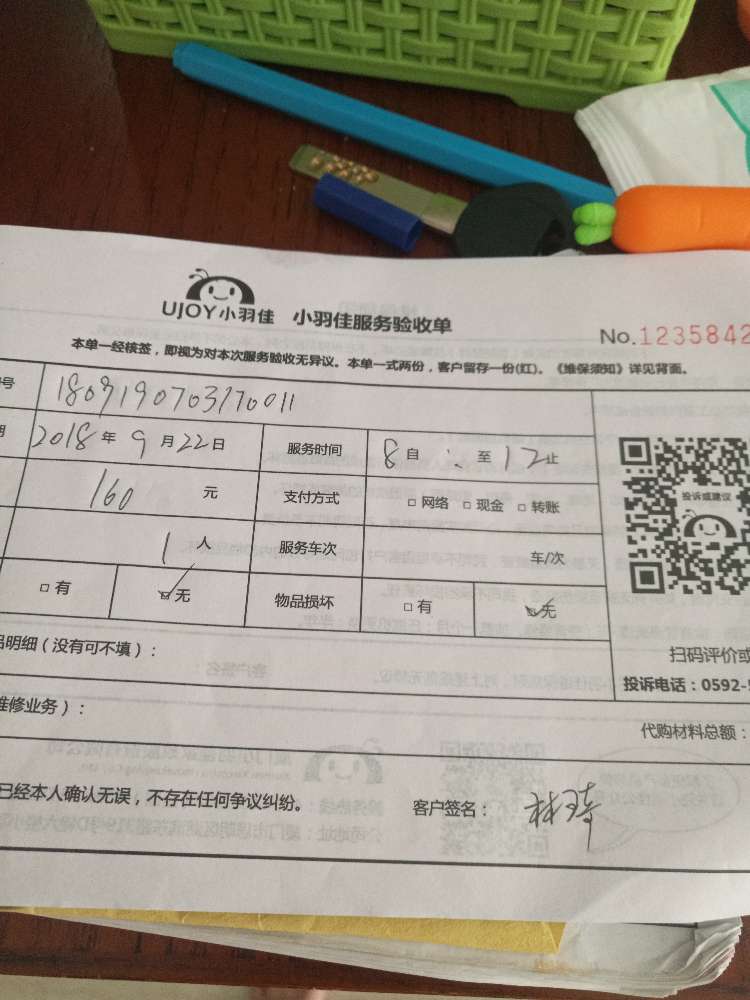 UJOY小羽佳 小羽佳服务验收单
No.1235842
本单一经核签，即视为对本次服务验收无异议。本单一式两份，客户留存一份(红)。《维保须知》详见背面。
号 1809190703170011
2018年9月22日 服务时间 8自 : 至12止
160元 支付方式 □网络 □现金 □转账
1人 服务车次 车/次
□有 ☑无 物品损坏 □有 ☑无
投诉或建议
扫码评价或
投诉电话：0592-
品明细（没有可不填）：
维修业务）： 代购材料总额：
已经本人确认无误，不存在任何争议纠纷。 客户签名：